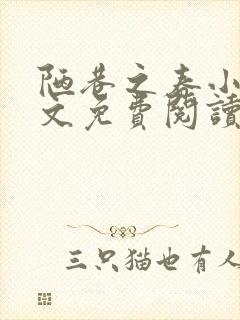 陋巷之春小
文免費閱讀
三只猫也有人